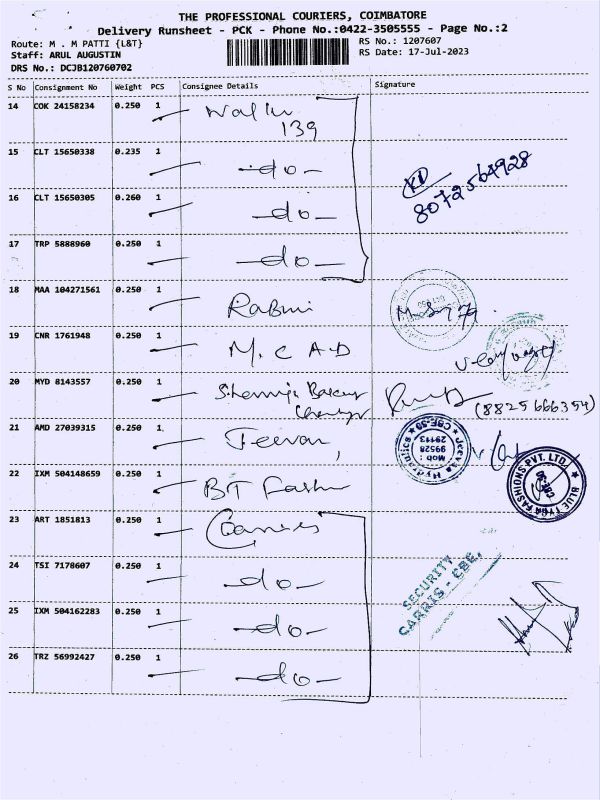 THE PROFESSIONAL COURIERS, COIMBATORE
Delivery Runsheet - PCK - Phone No.:0422-3505555 - Page No.:2
Route: M . M PATTI {L&T}
RS No.: 1207607
Staff: ARUL AUGUSTIN
RS Date: 17-Jul-2023
DRS No.: DCJB120760702
S No Consignment No Weight PCS Consignee Details Signature
14 COK 24158234 0.250 1
139
15 CLT 15650338 0.235 1
-do-
KD
8072564928
16 CLT 15650305 0.260 1
-do-
17 TRP 5888960 0.250 1
-do-
18 MAA 104271561 0.250 1
19 CNR 1761948 0.250 1
M.C A.D
20 MYD 8143557 0.250 1
(8825666354)
21 AMD 27039315 0.250 1
Jeevan,
Jeevan Hydraulics
CBE-50
Mob :
99528
29113
22 IXM 504148659 0.250 1
BT Fashn
BLUE TYGA FASHIONS PVT. LTD.
23 ART 1851813 0.250 1
Carries
24 TSI 7178607 0.250 1
-do-
SECURITY
CARRIS - CBE,
25 IXM 504162283 0.250 1
-do-
26 TRZ 56992427 0.250 1
-do-